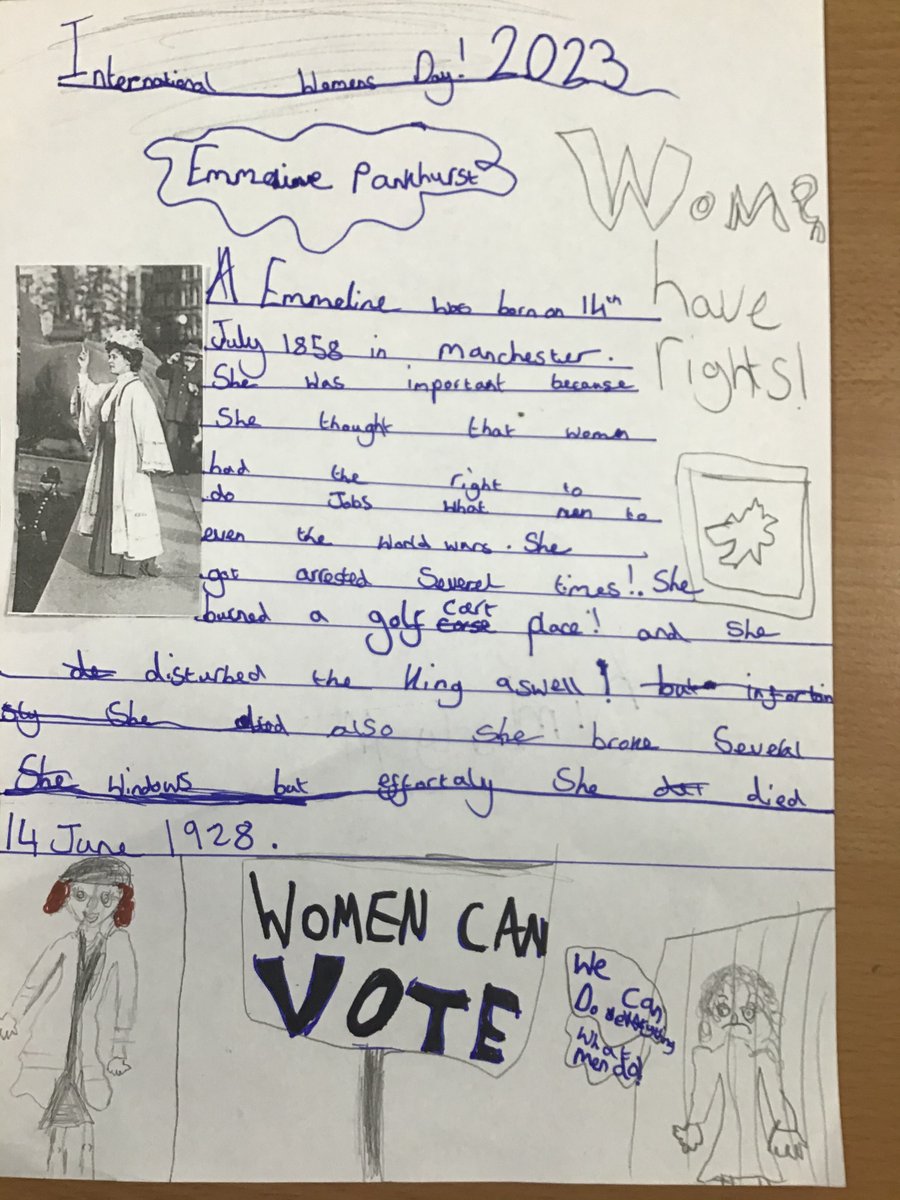 International Womens Day! 2023
Emmeline Pankhurst
Women
have
rights!
A Emmeline was born on 14th
July 1858 in manchester.
She was important because
She thought that women
had the right to
do Jobs what men to
even the world wars. She
got arrested Severel times!. She
burned a golf corse cart place! and she
de disturbed the King aswell! but infortain
sty She died also She broke Several
She windows but effortaly She died
14 June 1928.
WOMEN CAN
VOTE
We
Can
Do
What
men do!